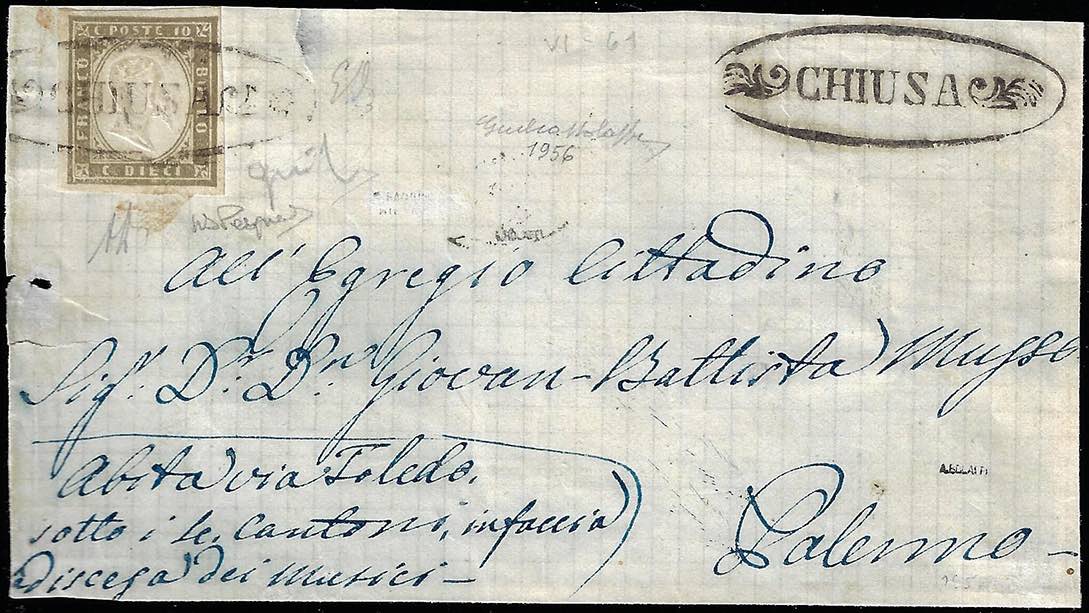 C. POSTE 10
FRANCO
BOLLO
C. DIECI
CHIUSA
CHIUSA
VI - 61
1956
All' Egregio Cittadino
Sigr. Dr. Dn. Giovan-Battista
Abita via Toledo.
sotto i 4 Cantoni, in faccia
discesa dei Musici —
Palermo —